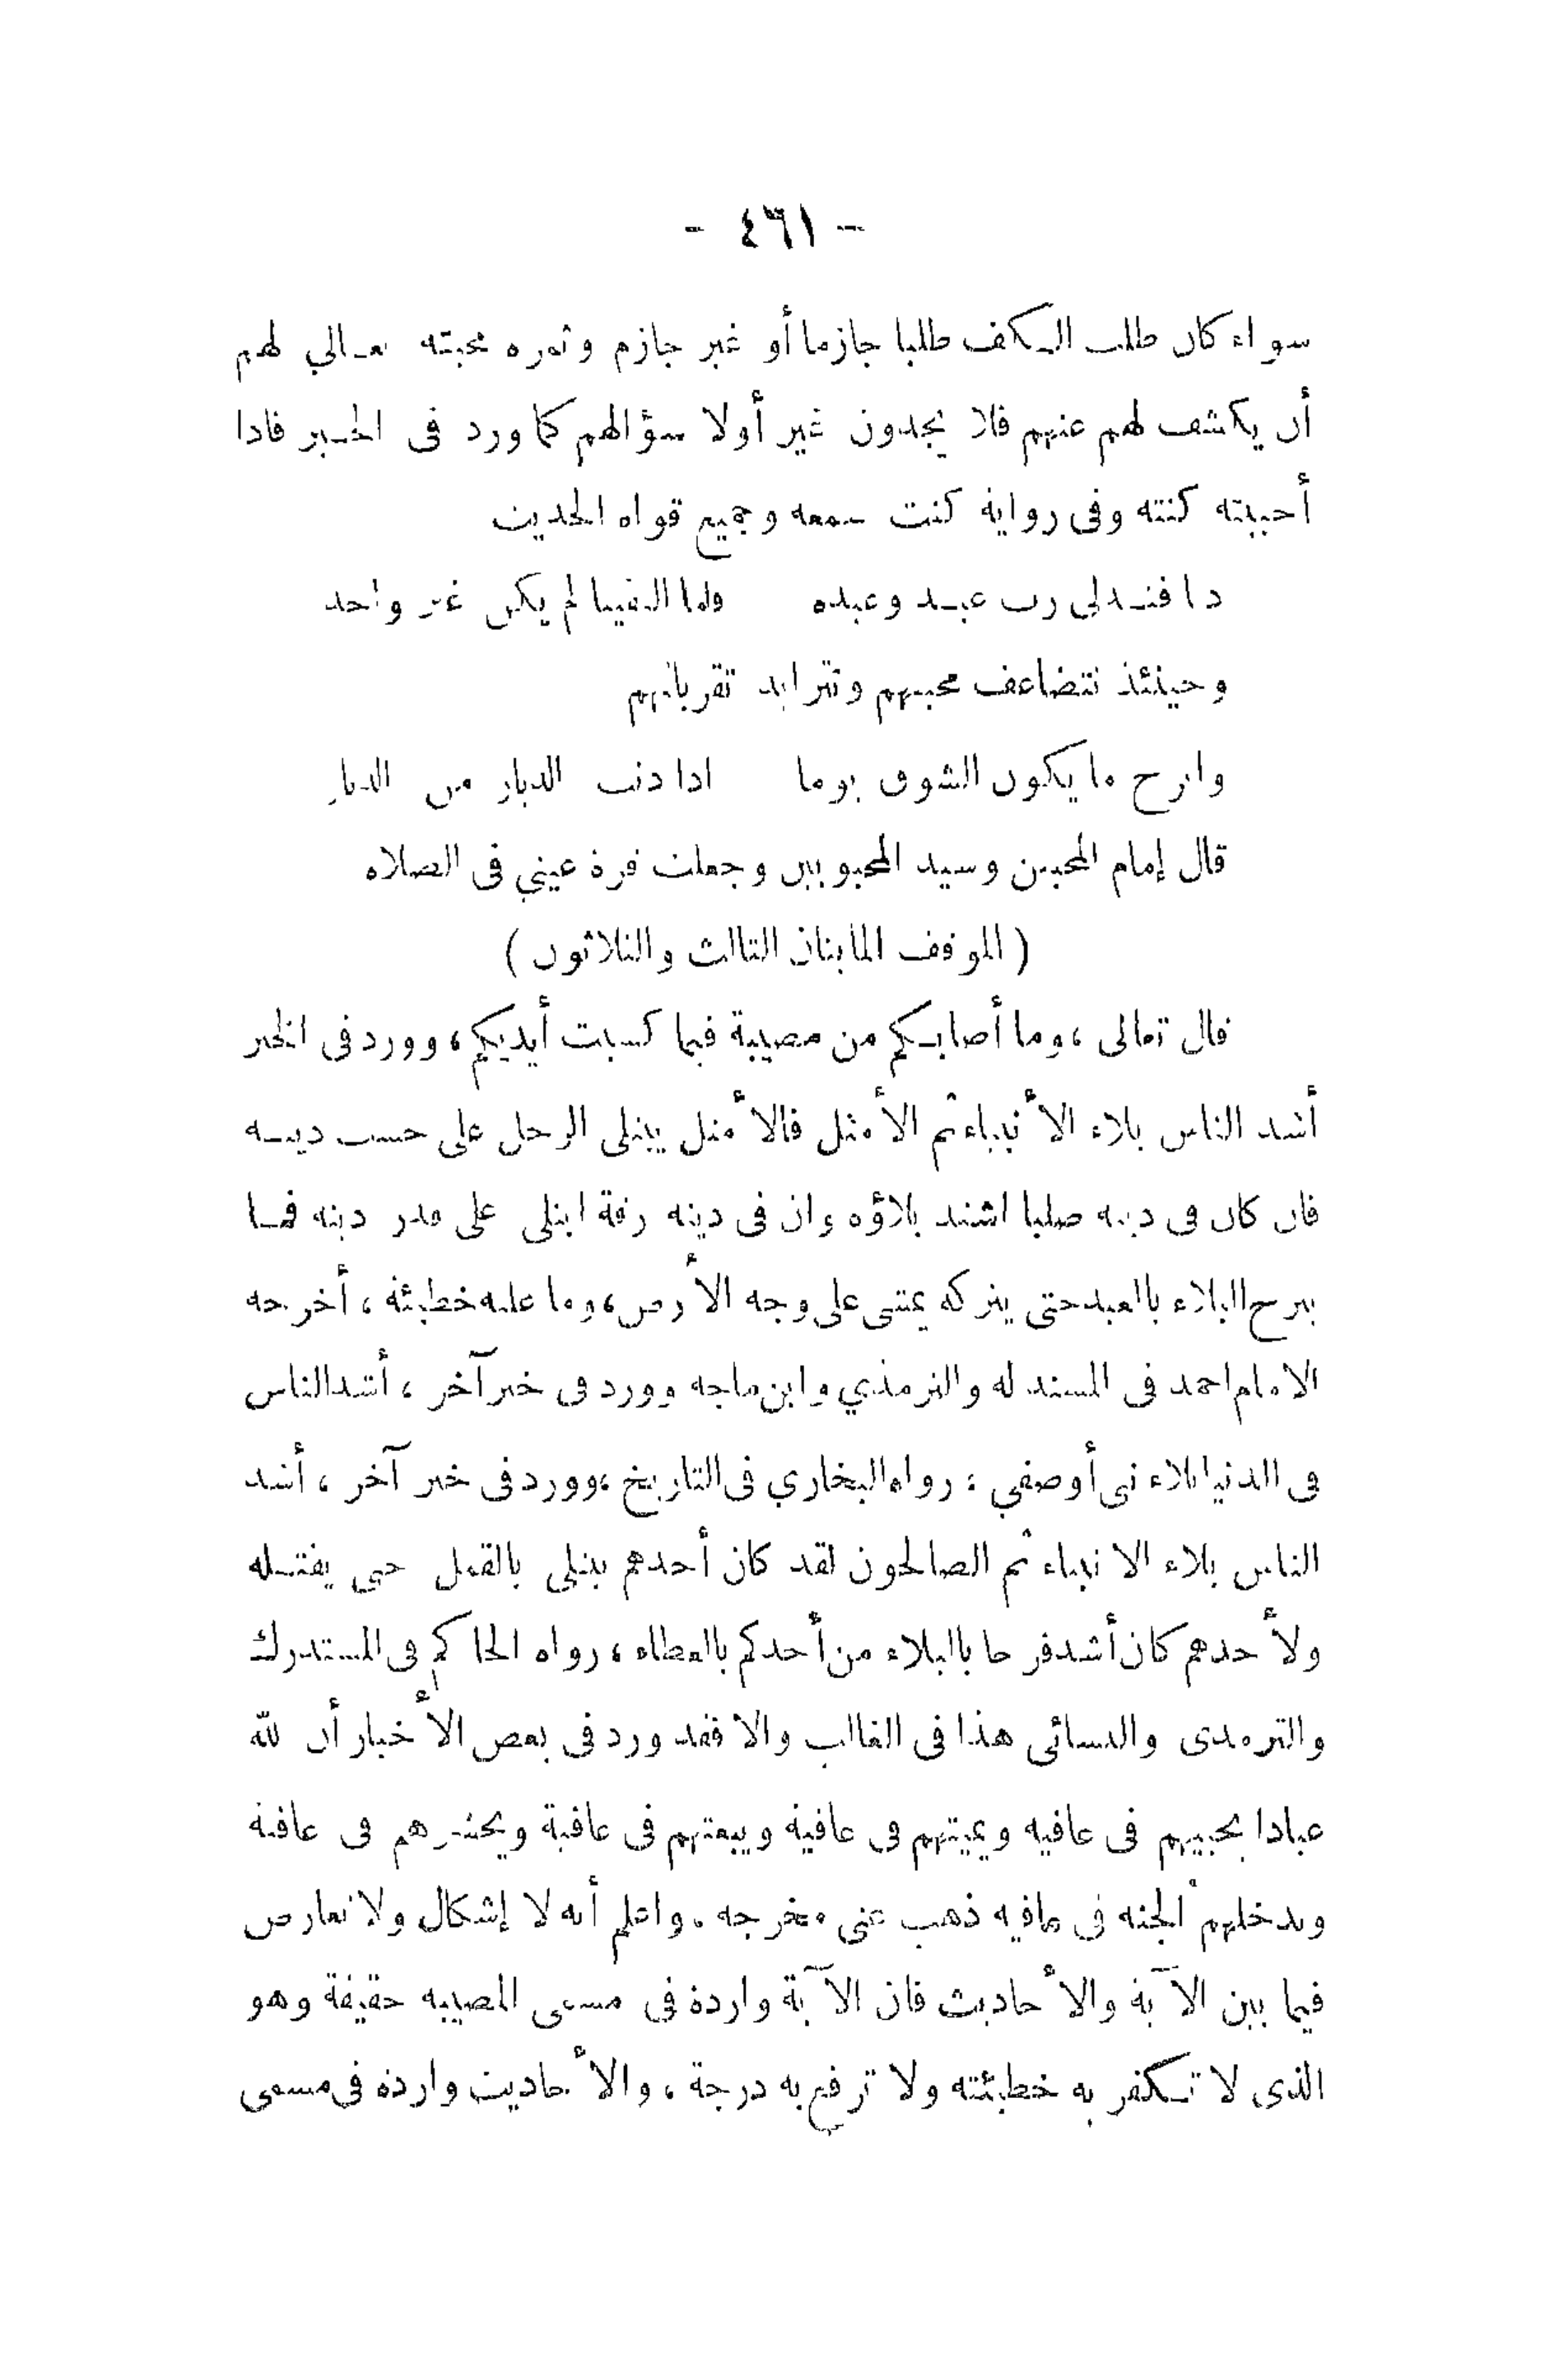 - ٤٦١ -
سواء كان طلب الكف طلبا جازما أو غير جازم وثمرة محبته تعالي لهم
أن يكشف لهم عنهم فلا يجدون غير أولا سؤالهم كما ورد فى الخبر فاذا
أحببته كنته وفى رواية كنت سمعه وجميع قواه الحديث
وحينئذ تتضاعف محبتهم وتتزايد تقرباتهم
وابرح ما يكون الشوق يوما اذا دنت الديار من الديار
قال إمام المحبين وسيد المحبوبين وجعلت قرة عيني فى الصلاة
( الموقف المائتان الثالث والثلاثون )
قال تعالى ، وما أصابكم من مصيبة فبما كسبت أيديكم ، وورد فى الخبر
أشد الناس بلاء الأنبياء ثم الأمثل فالأمثل يبتلى الرجل على حسب دينه
فان كان فى دينه صلبا اشتد بلاؤه وان فى دينه رقة ابتلى على قدر دينه فما
يبرح البلاء بالعبد حتى يتركه يمشى على وجه الأرض ، وما عليه خطيئة ، أخرجه
الامام احمد فى المسند له والترمذي وابن ماجه وورد فى خبر آخر ، أشد الناس
فى الدنيا بلاء نبى أو صفي ، رواه البخاري فى التاريخ ، وورد فى خبر آخر ، أشد
الناس بلاء الانبياء ثم الصالحون لقد كان أحدهم يبتلى بالقمل حتى يقتله
ولأحدهم كان أشد فرحا بالبلاء من أحدكم بالعطاء ، رواه الحاكم فى المستدرك
والترمذى والنسائى هذا فى الغالب والا فقد ورد فى بعض الأخبار أن لله
عبادا يحييهم فى عافية ويميتهم فى عافية ويبعثهم فى عافية ويحشرهم فى عافية
ويدخلهم الجنة فى عافية ذهب عنى مخرجه . واعلم أنه لا إشكال ولا تعارض
فيما بين الآية والأحاديث فان الآية واردة فى مسمى المصيبة حقيقة وهو
الذى لا تكفر به خطيئته ولا ترفع به درجة ، والأحاديث واردة فى مسمى